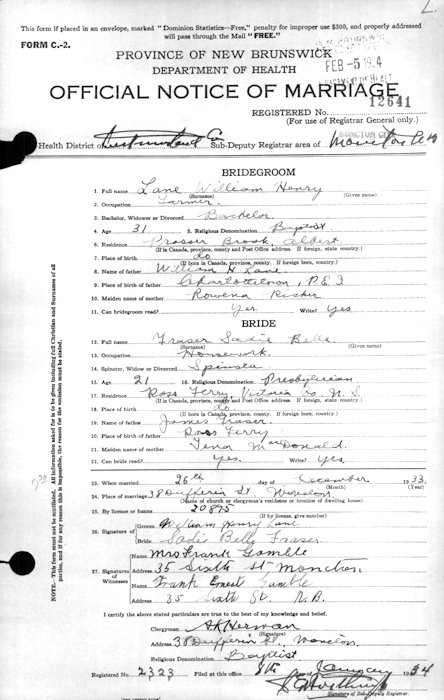 This form if placed in an envelope, marked "Dominion Statistics—Free," penalty for improper use $300, and properly addressed
will pass through the Mail "FREE."
FORM C.-2.
PROVINCE OF NEW BRUNSWICK
DEPARTMENT OF HEALTH
FEB -5 1934
OFFICIAL NOTICE OF MARRIAGE
12641
REGISTERED NO.
(For use of Registrar General only.)
Health District of Westmorland Co Sub-Deputy Registrar area of Moncton
BRIDEGROOM
1. Full name Lane William Henry
(Surname) (Given name)
2. Occupation Farmer
3. Bachelor, Widower or Divorced Bachelor
4. Age 31 5. Religious Denomination Baptist
6. Residence Prosser Brook, Albert
(If in Canada, province, county and Post Office address. If foreign, state country.)
7. Place of birth do
(If born in Canada, province, county. If foreign, state country.)
8. Name of father William H Lane
9. Place of birth of father Charlottetown, P.E.I
10. Maiden name of mother Rowena
11. Can bridegroom read? Yes Write? Yes
BRIDE
12. Full name Fraser Sadie Belle
(Surname) (Given name)
13. Occupation Housework
14. Spinster, Widow or Divorced Spinster
15. Age 21 16. Religious Denomination Presbyterian
17. Residence Ross Ferry, Victoria Co. N.S.
(If in Canada, province, county and Post Office address. If foreign, state country.)
18. Place of birth do
(If born in Canada, province, county. If foreign, state country.)
19. Name of father James Fraser
20. Place of birth of father Ross Ferry
21. Maiden name of mother Tena MacDonald
22. Can bride read? Yes. Write? Yes.
23. When married 26th day of December 1933
(Month) (Year)
24. Place of marriage 38 Dufferin St Moncton
(Name of church or clergyman's residence or location of dwelling house)
25. By license or banns 20875
(If by license, give number)
26. Signature of
Groom William Henry Lane
Bride Sadie Belle Fraser
27. Signature of Witnesses
Name Mrs Frank Gamble
Address 35 Sixth St Moncton
Name Frank Ernest Gamble
Address 35 Sixth St. N.B.
I certify the above stated particulars are true to the best of my knowledge and belief.
Clergyman AK Herman
(Signature)
Address 38 Dufferin St, Moncton
Religious Denomination Baptist
Registered No. 2323 Filed at this office 8th January 1934
Signature of Sub-Deputy Registrar.
This form must not be mutilated. All information asked for is to be given including full Christian and Surnames of all
parties, and if for any reason this is impossible, the reason for the omission must be stated.